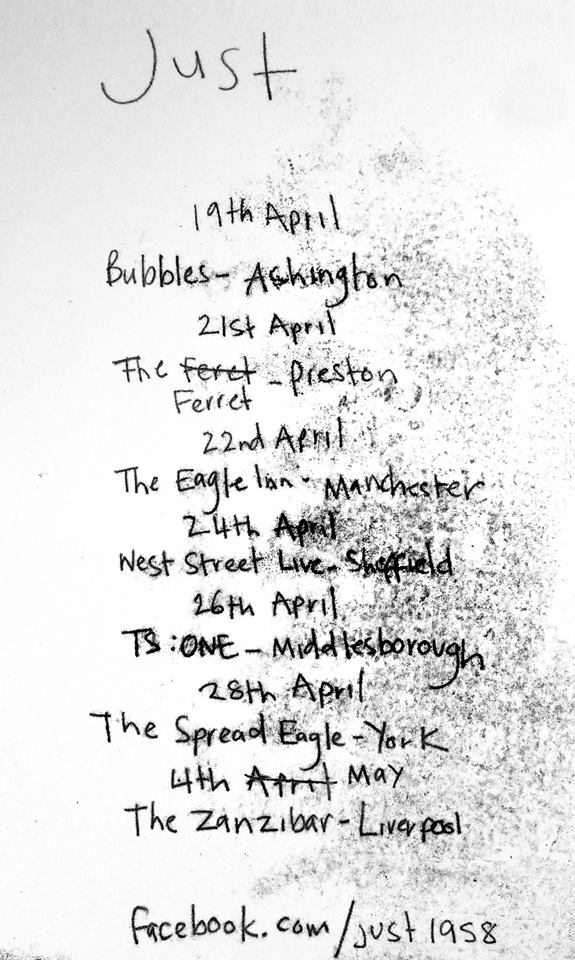 Just
19th April
Bubbles- Ashington
21st April
The Feret - Preston
Ferret
22nd April
The Eagle Inn - Manchester
24th April
West Street Live - Sheffield
26th April
TS:ONE - Middlesborough
28th April
The Spread Eagle - York
4th April May
The Zanzibar - Liverpool
facebook.com/just1958